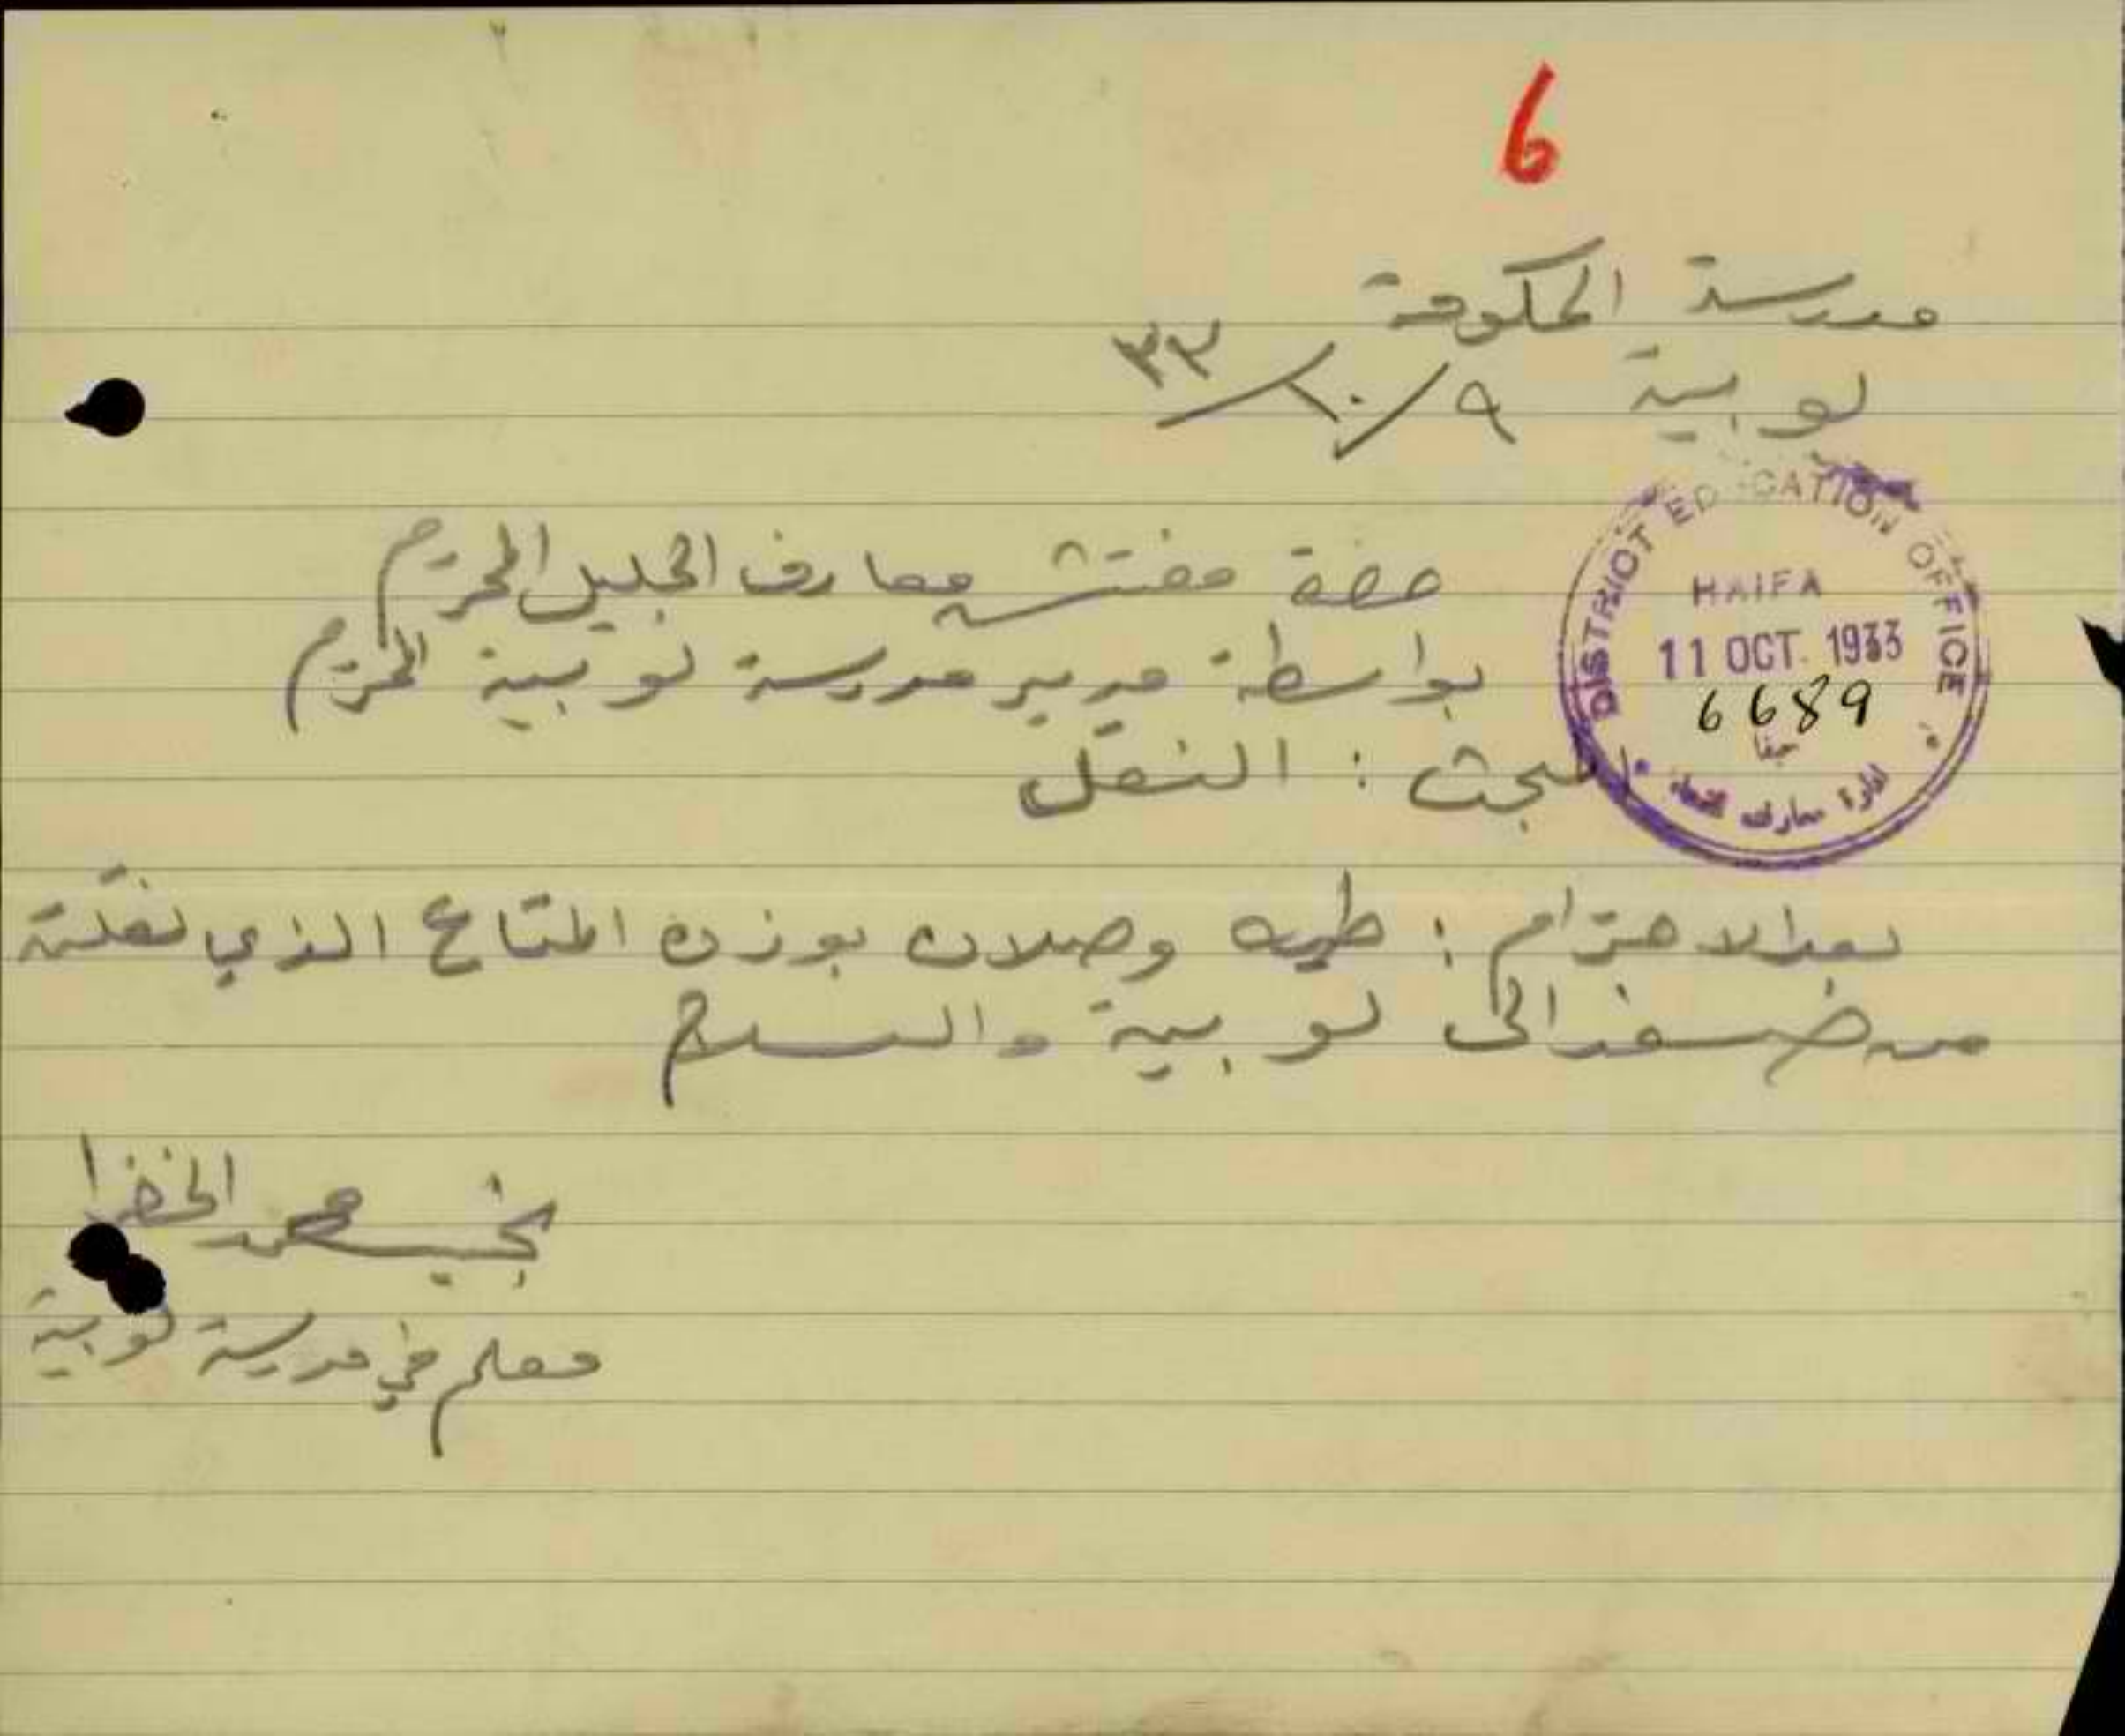 6
مدرسة الحكومة
لوبية ٩/١٠/٣٣
DISTRICT EDUCATION OFFICE
HAIFA
11 OCT. 1933
6689
حيفا
ادارة معارف
حضرة مفتش معارف الجليل المحترم
بواسطة مدير مدرسة لوبية المحترم
المبحث : النقل
بعد الاحترام : طيه وصلان بوزن المتاع الذي نقلته
من صفد الى لوبية والسلام
نجيب محمد الخضرا
معلم في مدرسة لوبية